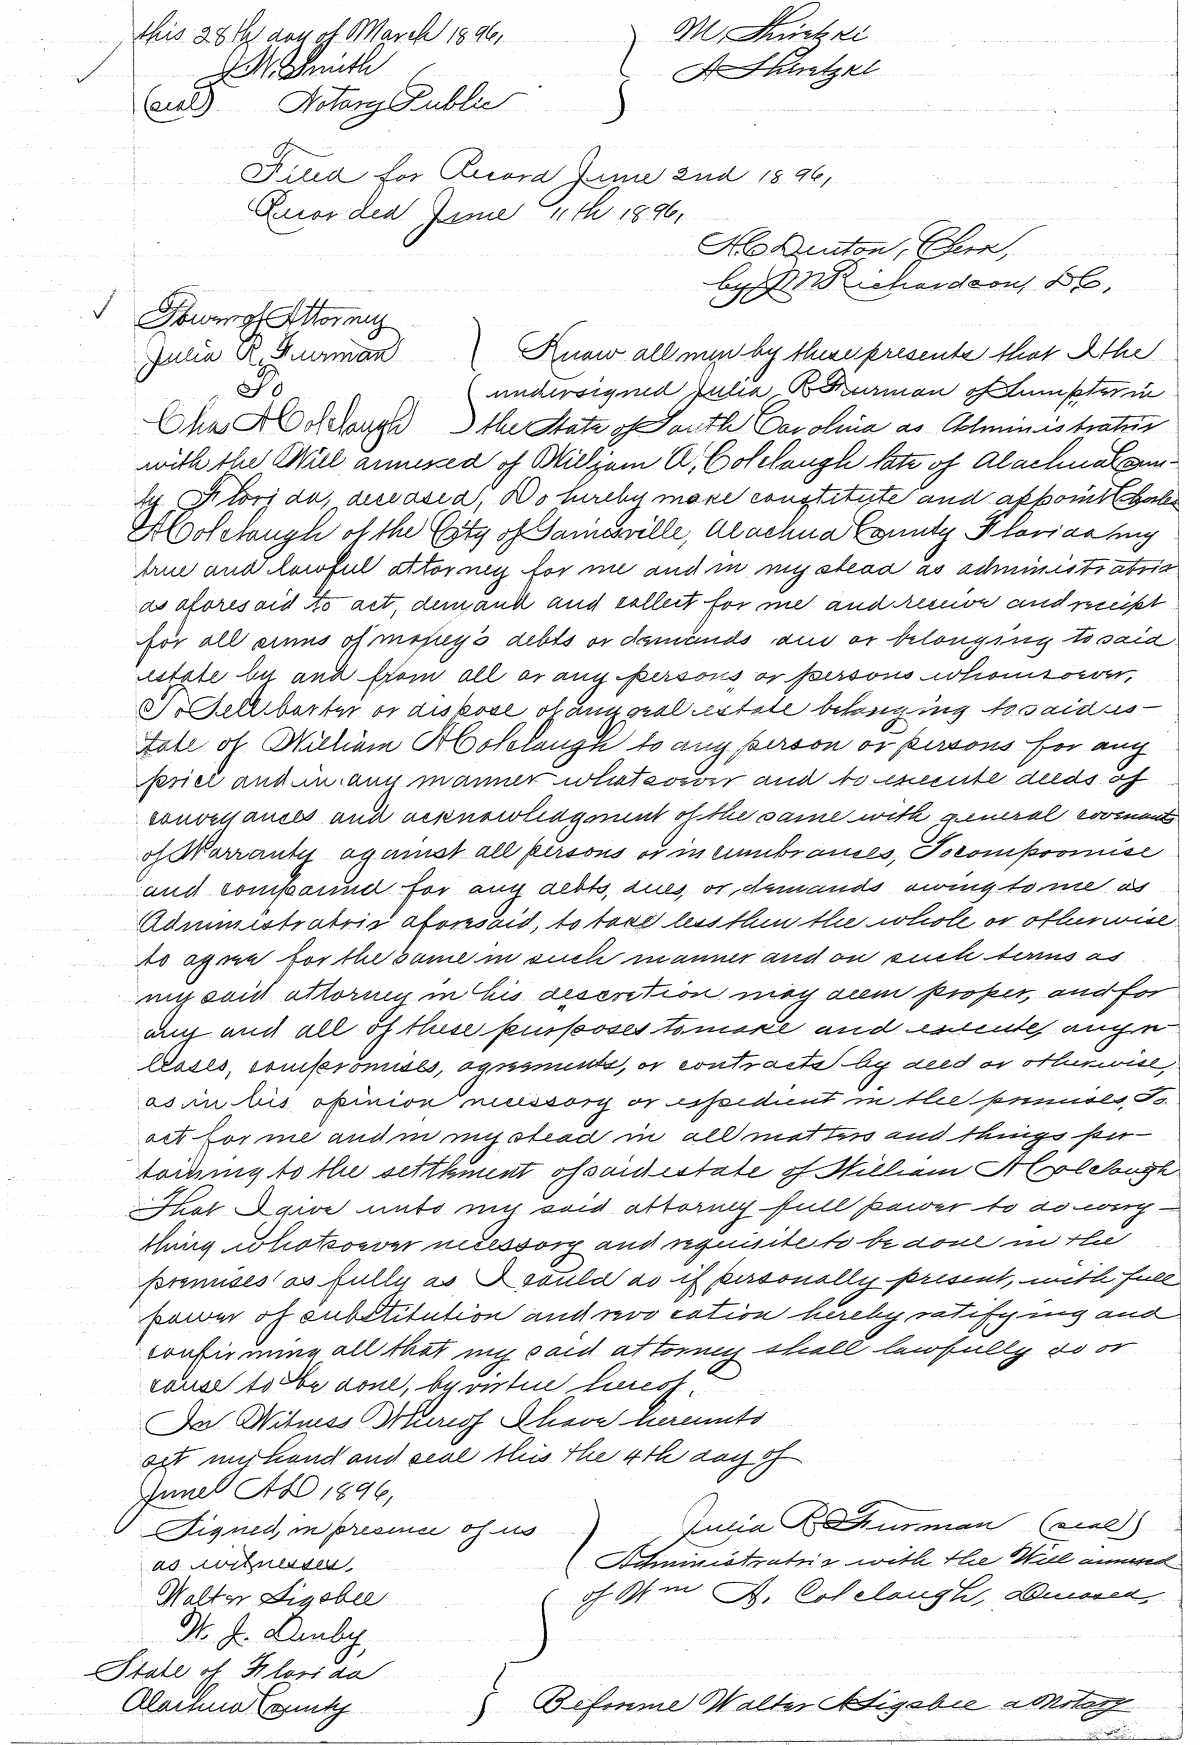 this 28th day of March 1896,
M, Shiretzki
J. W. Smith
A Shiretzki
(seal) Notary Public
Filed for Record June 2nd 1896,
Recorded June 11th 1896,
H C Denton, Clerk,
by Richardson, D C,
Power of Attorney
Julia R, Furman
To
Chas A Colclough
Know all men by these presents that I the
undersigned Julia R Furman of Sumpter in
the State of South Carolina as Administratrix
with the Will annexed of William A, Colclough late of Alachua Coun-
ty Florida, deceased, Do hereby make constitute and appoint Charles
A Colclough of the City of Gainesville, Alachua County Florida my
true and lawful attorney for me and in my stead as administratrix
as aforesaid to act, demand and collect for me and receive and receipt
for all sums of money's debts or demands due or belonging to said
estate by and from all or any persons, or persons whomsoever,
To Sell barter or dispose of any real estate belonging to said es-
tate of William A Colclough to any person or persons for any
price and in any manner whatsoever and to execute deeds of
conveyances and acknowledgment of the same with general covenants
of Warranty against all persons or incumbrances, To compromise
and compound for any debts, dues, or demands owing to me as
Administratrix aforesaid, to take less then the whole or otherwise
to agree for the same in such manner and on such terms as
my said attorney in his descretion may deem proper, and for
any and all of these purposes to make and execute, any re
leases, compromises, agreements, or contracts by deed or otherwise,
as in his opinion necessary or expedient in the premises, To
act for me and in my stead in all matters and things per-
taining to the settlement of said estate of William A Colclough
That I give unto my said attorney full power to do every-
thing whatsoever necessary and requisite to be done in the
premises as fully as I could do if personally present, with full
power of substitution and revocation hereby ratifying and
confirming all that my said attorney shall lawfully do or
cause to be done, by virtue hereof.
In Witness Whereof I have hereunto
set my hand and seal this the 4th day of
June AD 1896,
Signed, in presence of us
Julia R Furman (seal)
as witnesses.
Administratrix with the Will annexed
Walter Sigsbee
of Wm A, Colclough, Deceased,
W. J. Denby,
State of Florida
Alachua County
Before me Walter Sigsbee a Notary